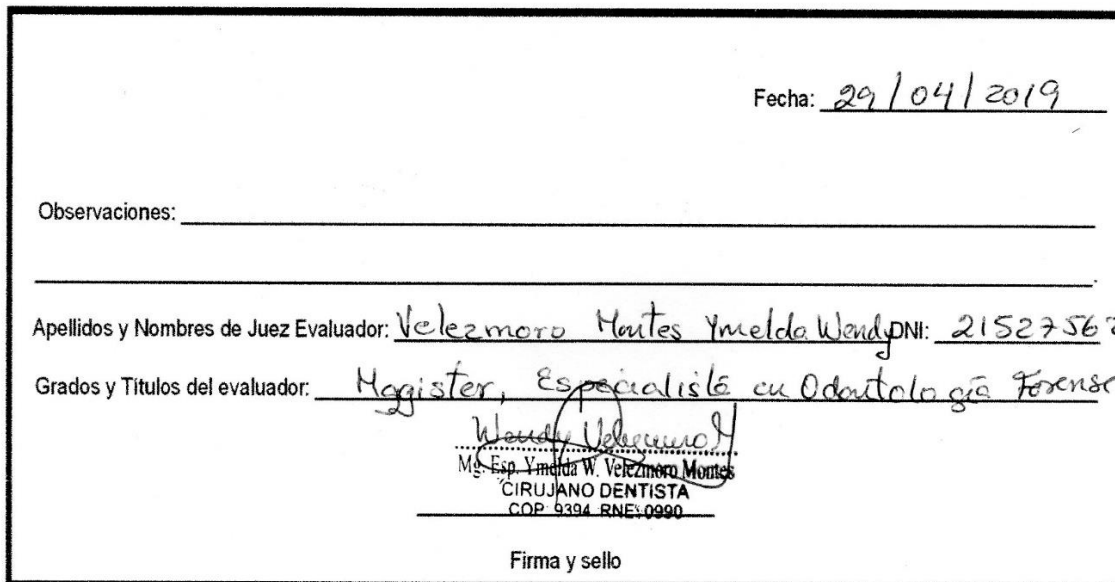 Fecha: 29/04/2019
Observaciones:
Apellidos y Nombres de Juez Evaluador: Velezmoro Montes Ymelda Wendy DNI: 2152756
Grados y Títulos del evaluador: Magister, Especialista en Odontología Forense
Wendy Velezmoro M
Mg. Esp. Ymelda W. Velezmoro Montes
CIRUJANO DENTISTA
COP: 9394 RNE: 0990
Firma y sello